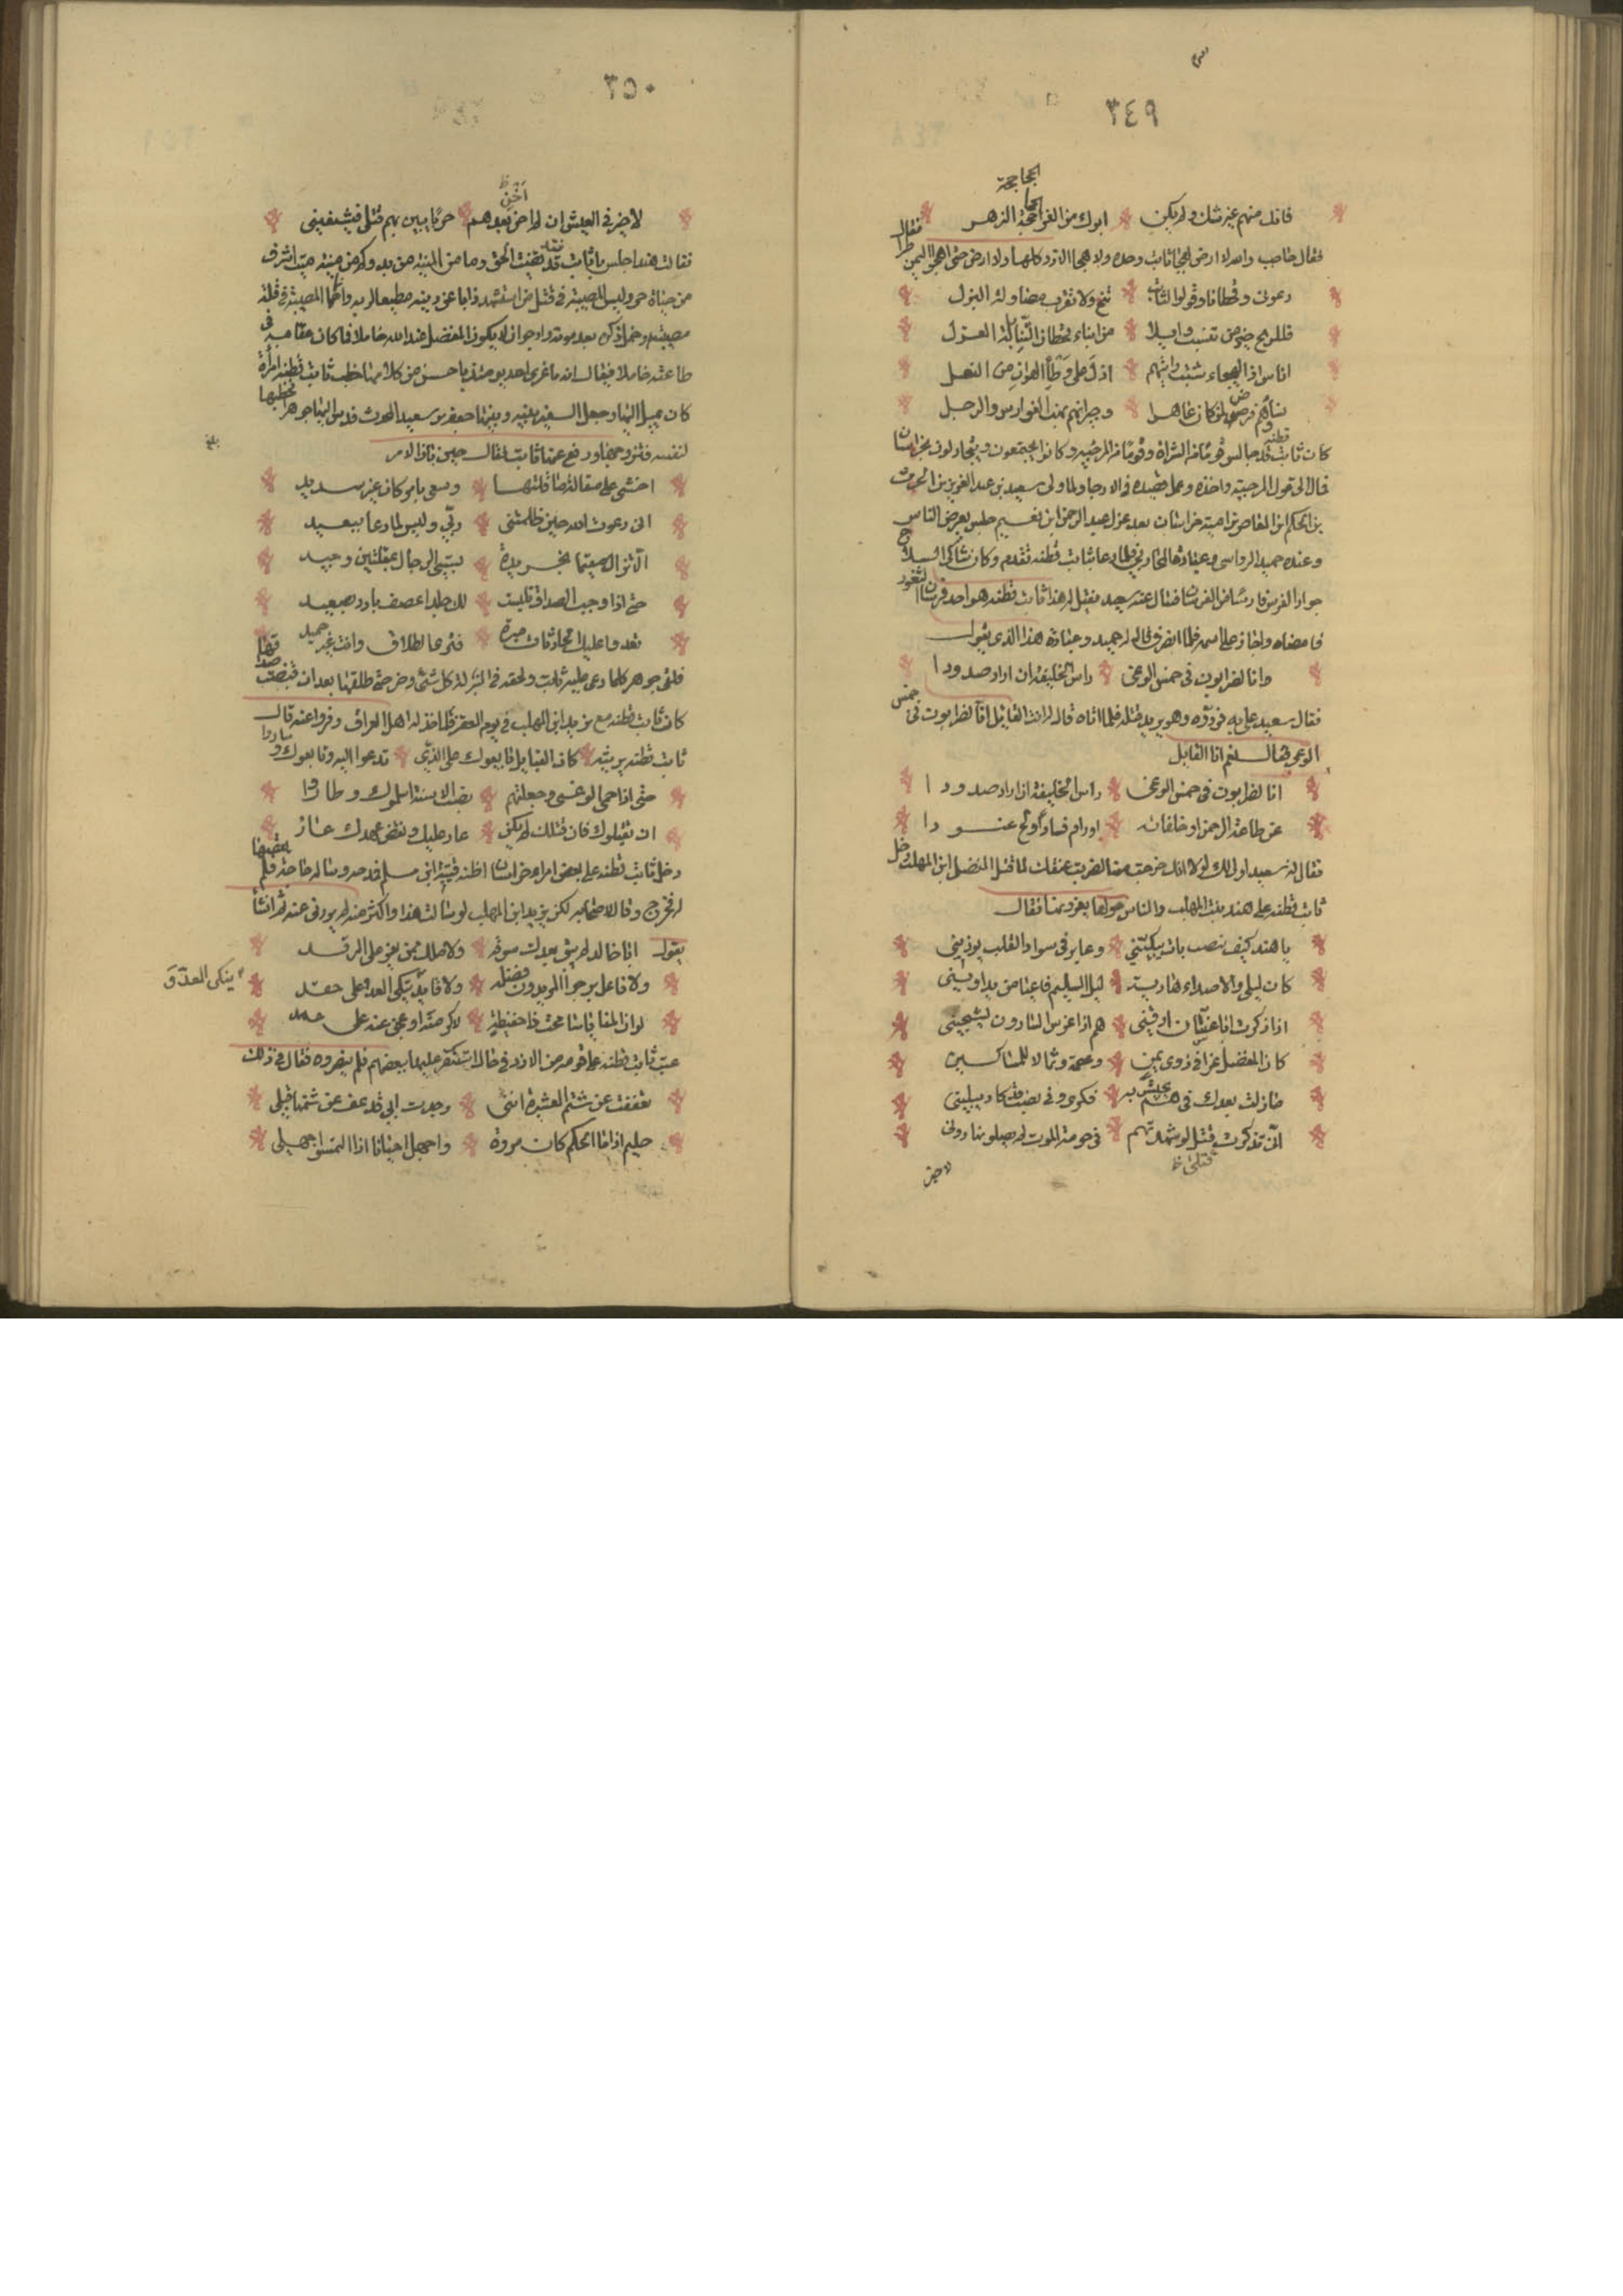 ٣٤٩
الجحاجحة
فانك منهم غير شك ولم يكن ابوك من الغر الجحاجحة الزهر
فقال حاجب والله لا ارضى بهجا ثابت وحده ولا هجا الازد كلها ولا ارضى حتى اهجو اليمن فقال
دعونى وقحطانا وقولوا لثابت تنح ولا تقرب مصاولة البزل
فللزنج خير حين تنسب والدا من ابناء قحطان العزل
اناس اذا الهيجاء شبت رايتهم اذل على وطأ الهوان من النعل
نساؤهم فوضى لمن كان عاهرا وجيرانهم نهب الفوارس والرجل
كان ثابت قطنة قد جالس قوما من الشراة وقوما من المرجية وكانوا يجتمعون ويتجادلون بخراسان
فمال الى قول المرجية واحبه وعمل قصيدة فى الارجا ولما ولى سعيد بن عبد العزيز بن الحرث
بن الحكم بن العاص بن امية خراسان بعد عزل عبد الرحمن ابن نعيم جلس يعرض الناس
وعنده حميد الرواسى وعبادة المحاربى فلما دعا بثابت قطنة تقدم وكان شاكى السلاح
جواد الفرس فارسا من الفرسان فسال عنه سعيد فقيل له هذا ثابت قطنة هو احد فرسان الثغور
فامضاه واجاز على اسمه فلما انصرف قال له حميد وعبادة هذا الذى يقول
وانا لضرابون فى حمس الوغى راس الخليفة ان اراد صدودا
فقال سعيد على به فردوه وهو يريد قتله فلما اتاه قال له انت القايل انا لضرابون فى حمس
الوغى فقال نعم انا القايل
انا لضرابون فى حمس الوغى راس الخليفة ان اراد صدودا
عن طاعة الرحمن او خلفائه او رام فسادا ولج عنودا
فقال له سعيد اولى لك لولا انك خرجت منها لضربت عنقك لما قتل المفضل ابن المهلب دخل
ثابت قطنة على هند بنت المهلب والناس حولها يعزونها فقال
يا هند كيف بنصب بات يبكينى وعاير فى سواد القلب يوذينى
كان ليلى والاصداء هادية ليل السليم فاعيا من يداوينى
اذا ذكرت ابا غسان ارقنى هم اذا عرس السارون يشجينى
كان المفضل عزا فى ذوى يمن وعصمة وثمالا للمساكين
مازلت بعدك فى هم عيش به فكرى وفى نصب قد كاد يبلينى
انى تذكرت قتلى لو شهدتهم فى حومة الموت لم يصلوا بها دونى
قتلى ظ
لا خير
٣٥٠
لا خير فى العيش ان لم اجن بعدهم حربا يبين بهم قتلى فيشفينى
فقالت هند اجلس يا ثابت فقد قضيت الحق وما من المنية من بد وكم من ميتة ميت اشرف
من حياة حى وليس المصيبة فى قتل من استشهد ذابا عن دينه مطيعا لربه وانما المصيبة فى قلة
مصيبته وخمل ذكره بعد موته وارجوا ان لا يكون المفضل عند الله خاملا فى
طاعته خاملا فيقال انه ما عزى احد يومئذ باحسن من كلامها خطب ثابت قطنة امرأة
كان يميل اليها وجعل السفير بينه وبينها جعفر بن سعيد الحرث فدس اليها جوهر فخطبها
لنفسه فتزوجها ودفع عنها ثابت فقال حين بان الامر
افشى على مقالة ما قلتها وسعى بامر كان غير سديد
انى دعوت الله حين ظلمتنى ربى وليس لما دعا ببعيد
ان لا تزال متيما بخريدة تسبى الرجال بمقلتين وجيد
حتى اذا وجب الصداق تلبست لك جلد اعصف بارد بصعيد
تعدو عليك محاذثات مبرة فترى الطلاق وانت غير حميد
فلقى جوهر كلما دعى عليه ثابت ولحقه فى المنزلة كل شى وضر حتى طلقها بعد ان قبضت صداقها
كان ثابت قطنة مع يزيد ابن المهلب فى يوم العقر فلما خذله اهل العراق وفروا عنه قال
ثابت قطنة يرثيه كان القبايل بايعوك على الذى تدعوا اليه وتابعوك وساروا
حتى اذا حمى الوغى وجعلتهم نصب الاسنة اسلموك وطاروا
ان يقتلوك فان قتلك لم يكن عار عليك وبعض عهدك عار
دخل ثابت قطنة على بعض امراء خراسان اظنه قتيبة ابن مسلم فمدحه وساله حاجة فلم يقضها
له فخرج وقال لاصحابه لكن يزيد ابن المهلب لو سألته هذا واكثر منه لم يردنى عنه ثم انشا
يقول ابا خالد لم يبق بعدك سوقة ولا ملك ممن يعين على الرفد
ولا فاعل يرجوا المويدون فضله ولا قايد ينكى العدو على حقد
ينكى العدو
لو ان المنايا سامحت ذا حفيظة لاكرمته او عجن عنه على عمد
عتب ثابت قطنة على قومه من الازد فى حال استنصر عليها بعضهم فلم ينصروه فقال فى ذلك
تعففت عن شتم العشيرة اننى وجدت ابى قد عف عن شتمها قبلى
حليم اذا ما الحكم كان مروة واجهل احيانا اذا التمسوا جهلى